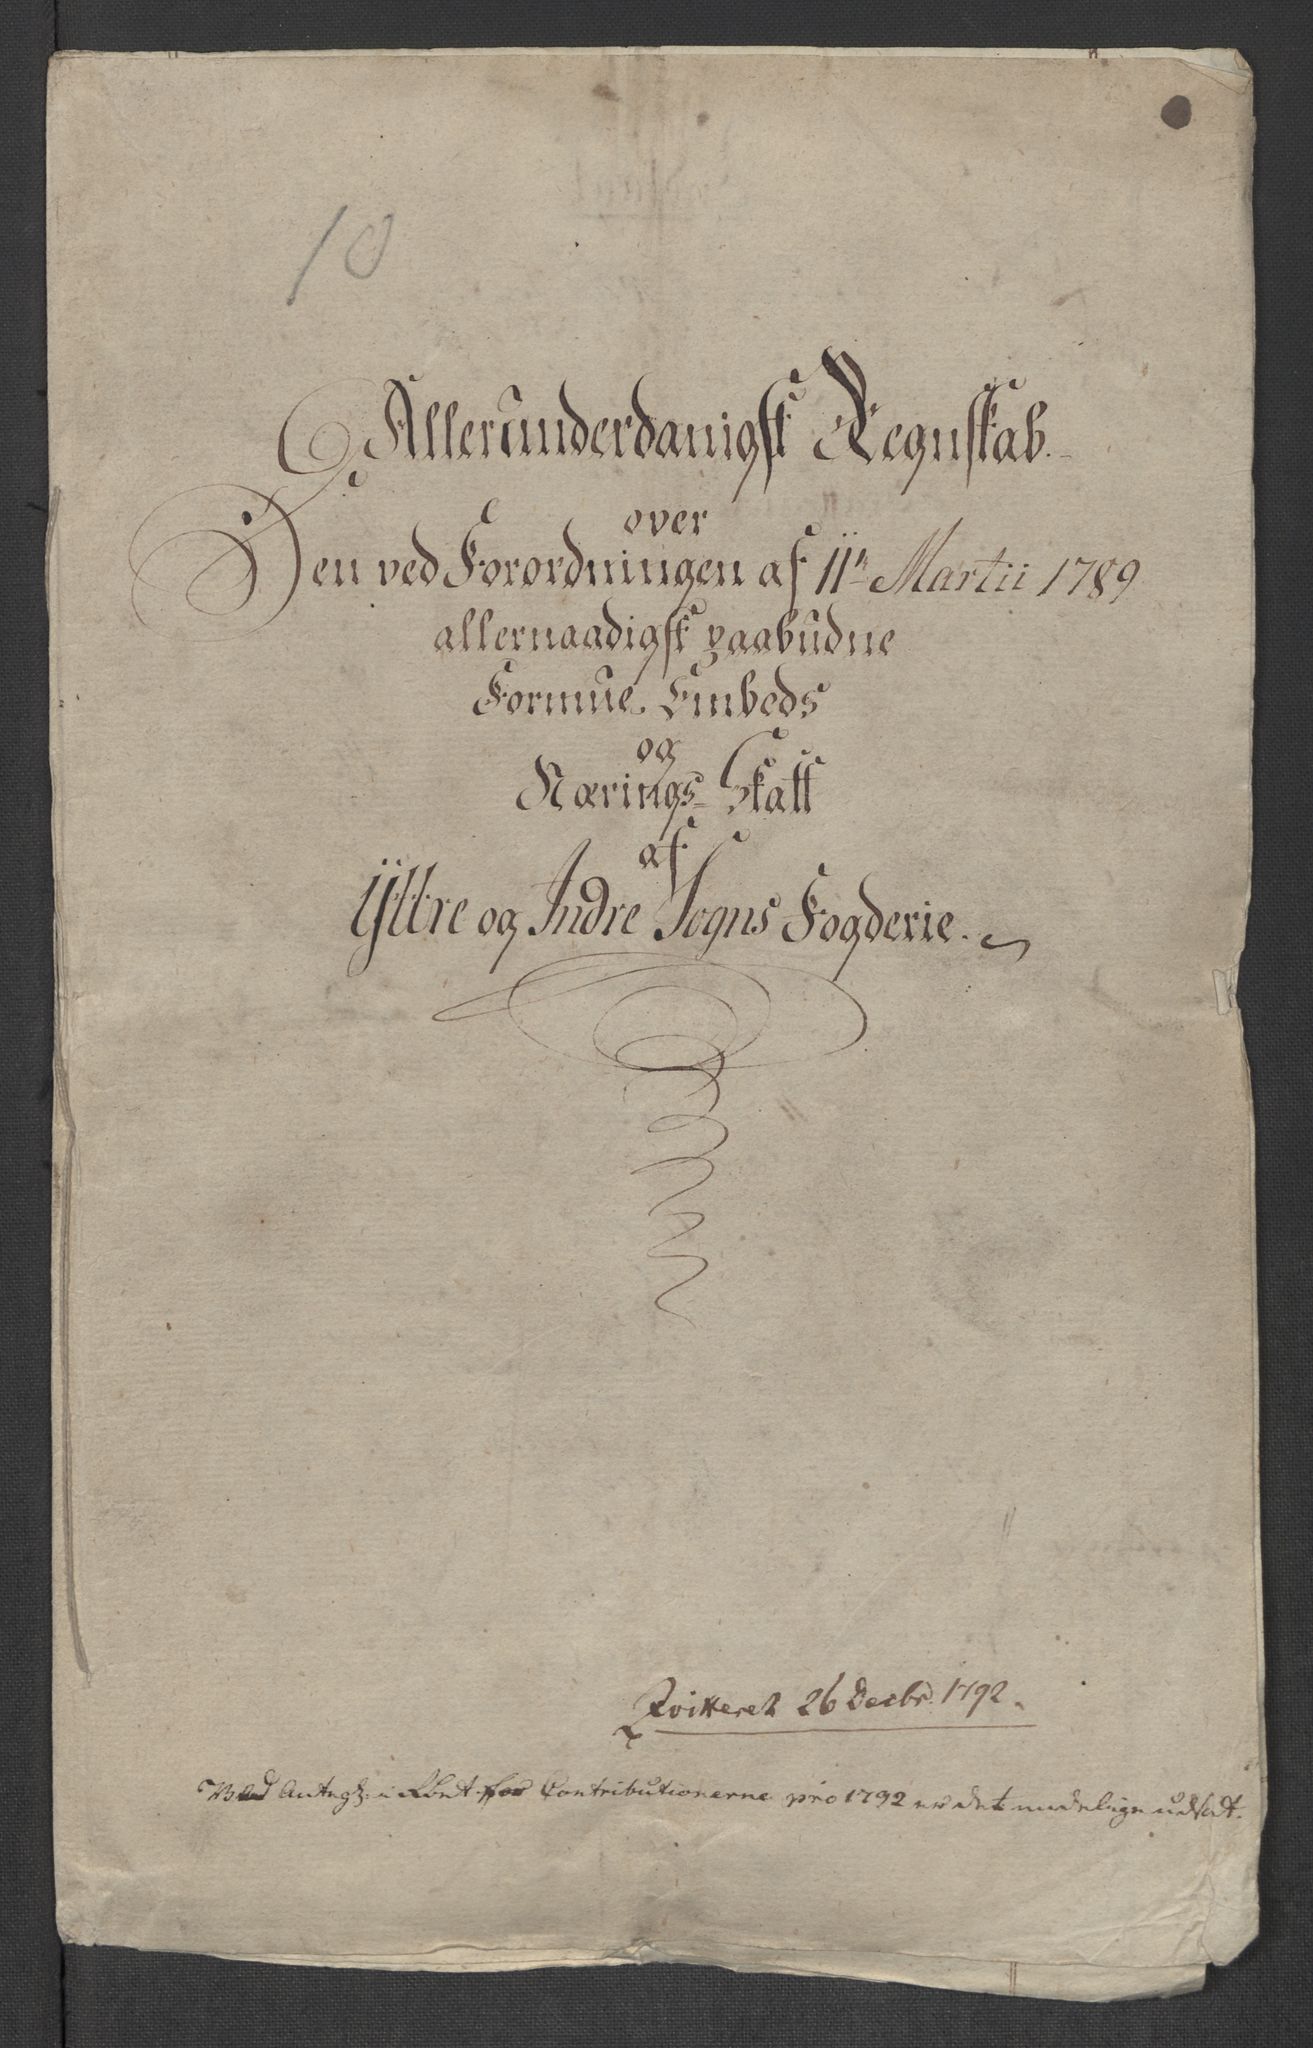 10
Allerunderdanigst Regnskab.
over
Den ved Forordningen af 11te Martii 1789
allernaadigst paabudne
Formue, Embeds
og
Nærings-Skatt
af
Yttre og Indre Sogns Fogderie.
Qvitteret 26 Decbr. 1792.
Ved i for Contributionerne pro 1792 er det